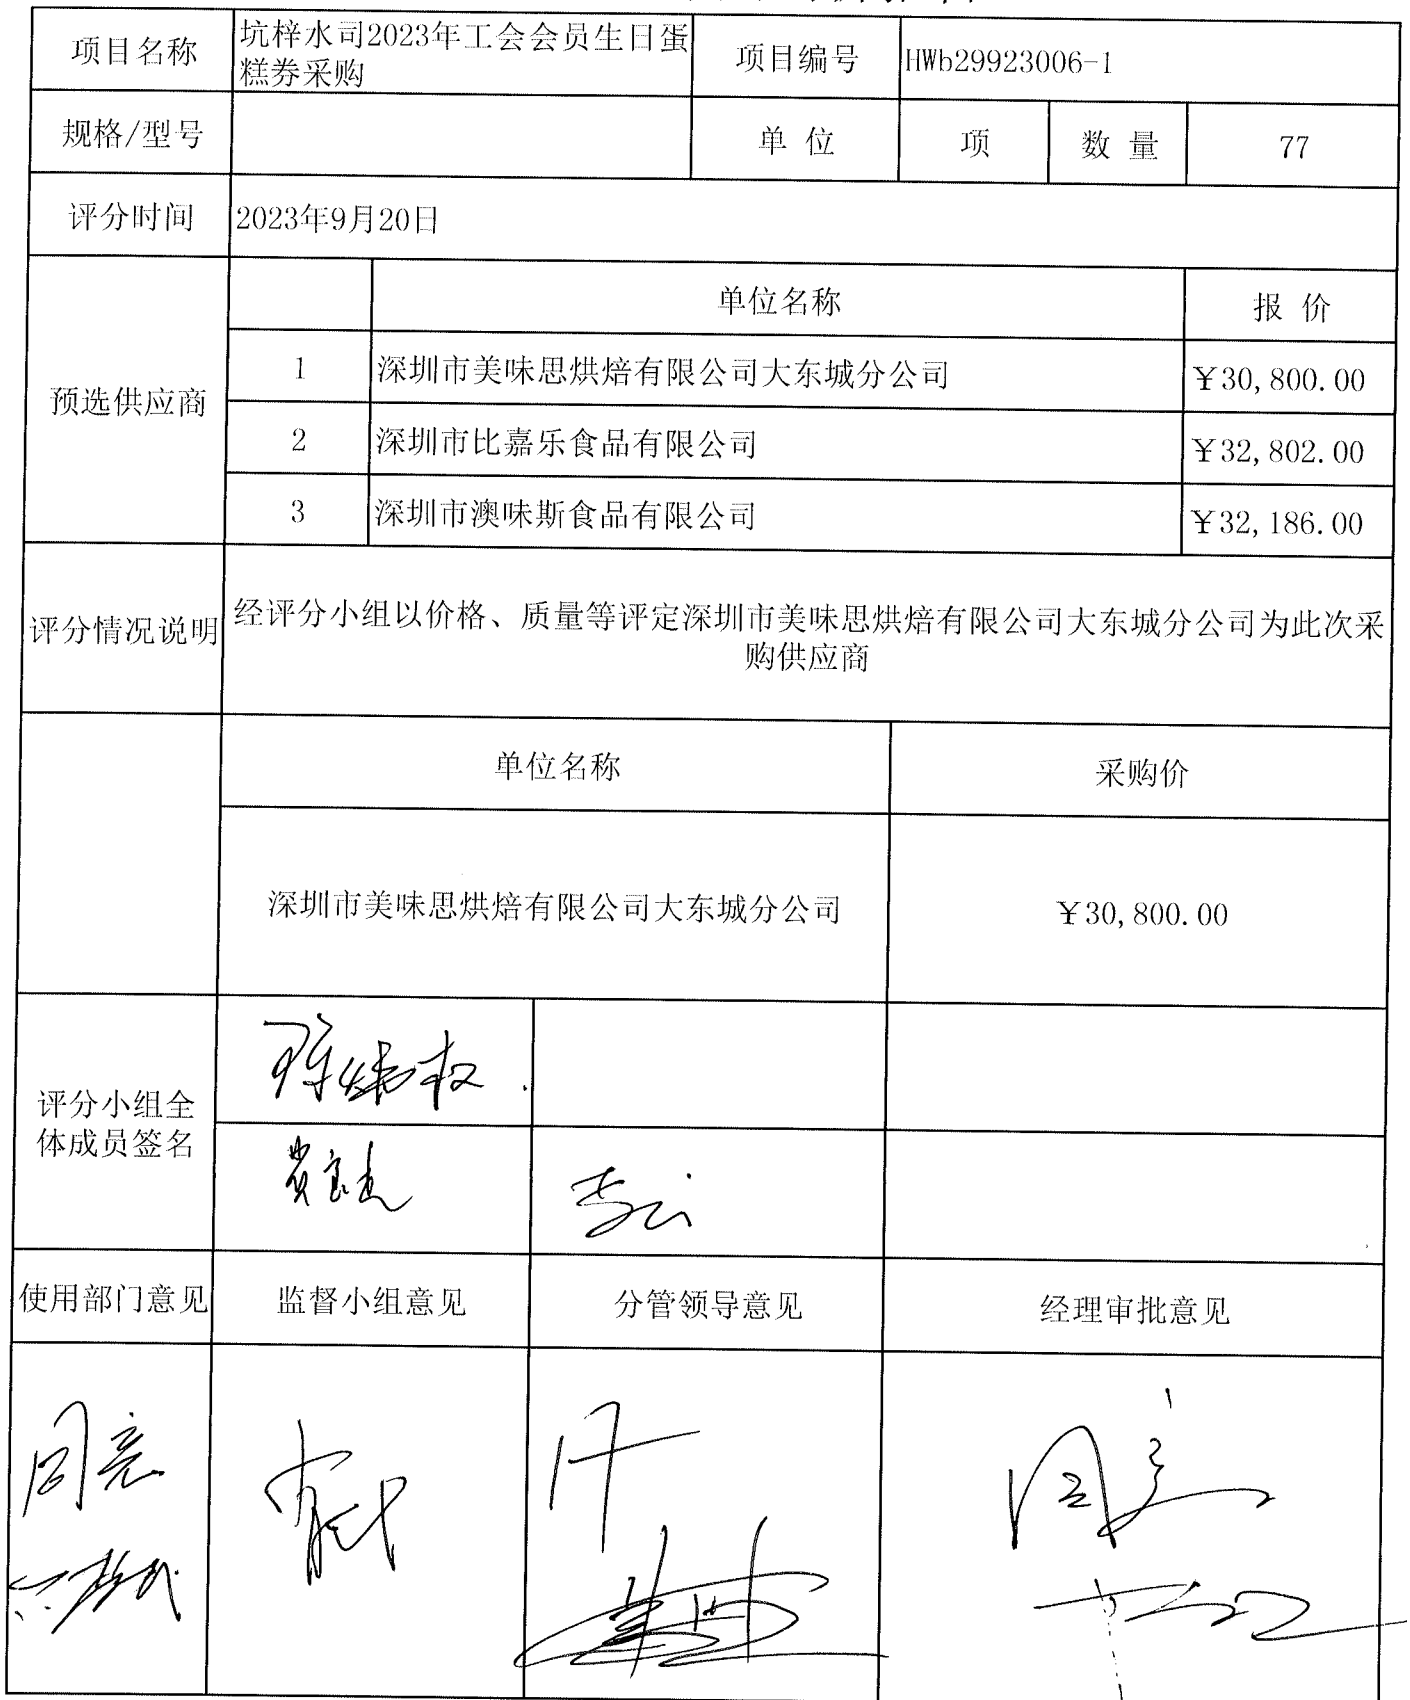 项目名称
坑梓水司2023年工会会员生日蛋
糕券采购
项目编号
HWb29923006-1
规格/型号
单 位
项
数 量
77
评分时间
2023年9月20日
预选供应商
单位名称
报 价
1
深圳市美味思烘焙有限公司大东城分公司
￥30,800.00
2
深圳市比嘉乐食品有限公司
￥32,802.00
3
深圳市澳味斯食品有限公司
￥32,186.00
评分情况说明
经评分小组以价格、质量等评定深圳市美味思烘焙有限公司大东城分公司为此次采
购供应商
单位名称
采购价
深圳市美味思烘焙有限公司大东城分公司
￥30,800.00
评分小组全
体成员签名
使用部门意见
监督小组意见
分管领导意见
经理审批意见
同意
同意